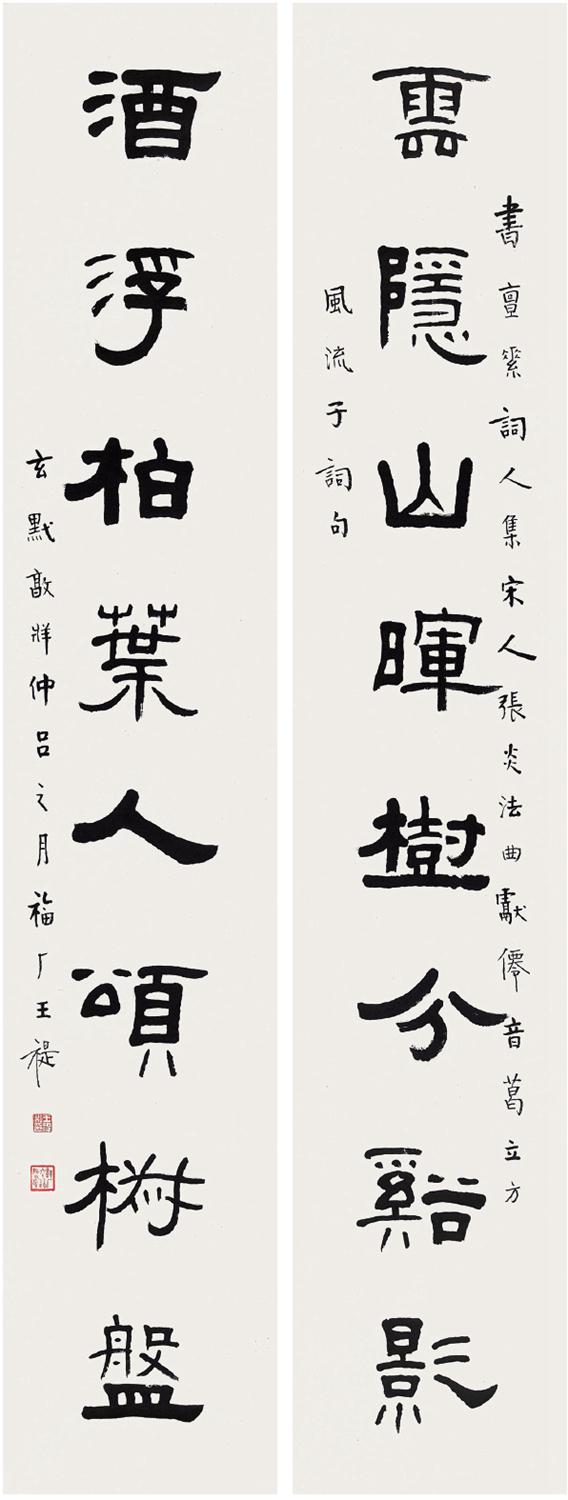 書亶絫詞人集宋人張炎法曲獻僊音葛立方
雲隱山暉樹分谿影
風流子詞句
酒浮柏葉人頌椒盤
玄黓敦牂仲呂之月福厂王禔